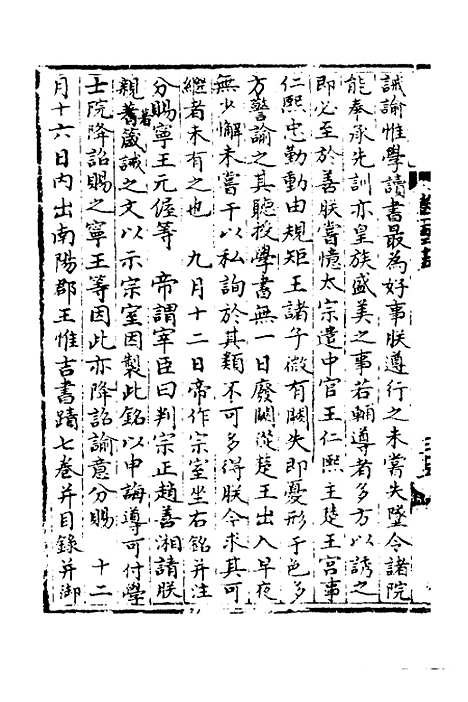 誡諭惟學讀書最為好事朕遵行之未嘗失墜令諸院
能奉承先訓亦皇族盛美之事若輔導者多方以誘之
即必至於善朕嘗憶太宗遣中官王仁熙主楚王宮事
仁熙忠勤動由規矩王諸子微有闕失即憂形于色多
方警諭之其聽授學書無一日廢闕從楚王出入早夜
無少懈未嘗干以私詢於其類不可多得朕令求其可
繼者未有之也　九月十二日帝作宗室坐右銘并注
分賜寧王元偓等　帝謂宰臣曰判宗正趙善湘請朕
親著箴誡之文以示宗室因製此銘以申誨導可付學
士院降詔賜之寧王等因此亦降詔諭意分賜　十二
月十六日內出南陽郡王惟吉書蹟七卷并目錄并御